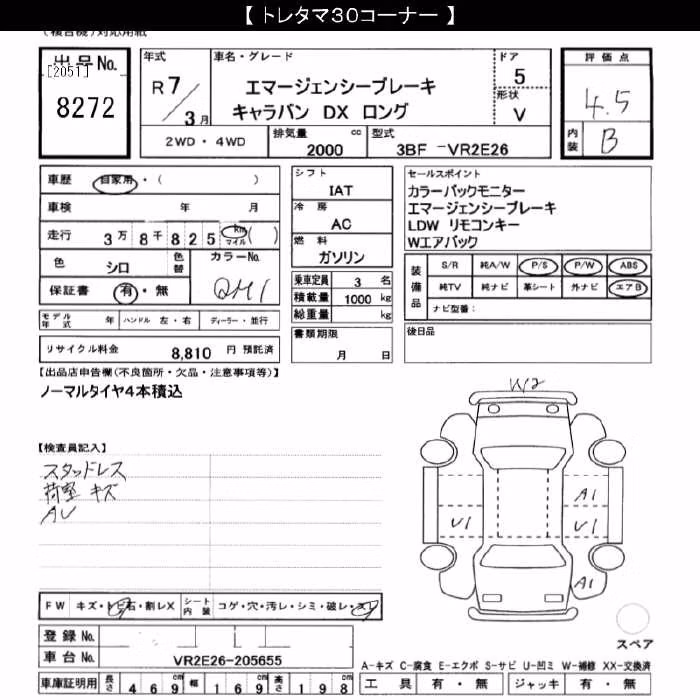 【 トレタマ30コーナー 】
(複合機)対応用紙
出品No. [2051] 8272
年式 R7/3月
車名・グレード エマージェンシーブレーキ
キャラバン DX ロング
ドア 5
形状 V
評価点 4.5
内装 B
2WD・4WD 排気量 2000 cc 型式 3BF -VR2E26
車歴 自家用・( )
車検 年 月
走行 3万8千825 km マイル ( )
色 シロ 色替 カラーNo. QM1
保証書 有・無
シフト IAT
冷房 AC
燃料 ガソリン
乗車定員 3 名
積載量 1000 kg
総重量 kg
セールスポイント
カラーバックモニター
エマージェンシーブレーキ
LDW リモコンキー
Wエアバック
装備品 S/R 純A/W P/S P/W ABS
純TV 純ナビ 革シート 外ナビ エアB
ナビ型番:
モデル年式 年 ハンドル 左・右 ディーラー・並行
書類期限 月 日
後日品
リサイクル料金 8,810 円 預託済
【出品店申告欄(不良箇所・欠品・注意事項等)】
ノーマルタイヤ4本積込
W2
【検査員記入】
スタッドレス
荷室 キズ
A1
U1 U1
A1
FW キズ・トビ石・割レX シート内装 コゲ・穴・汚レ・シミ・破レ・スレ
スペア
登録No.
車台No. VR2E26-205655
A-キズ C-腐食 E-エクボ S-サビ U-凹ミ W-補修 XX-交換済
車庫証明用 長さ 469cm 幅 169cm 高さ 198cm
工具 有・無 ジャッキ 有・無